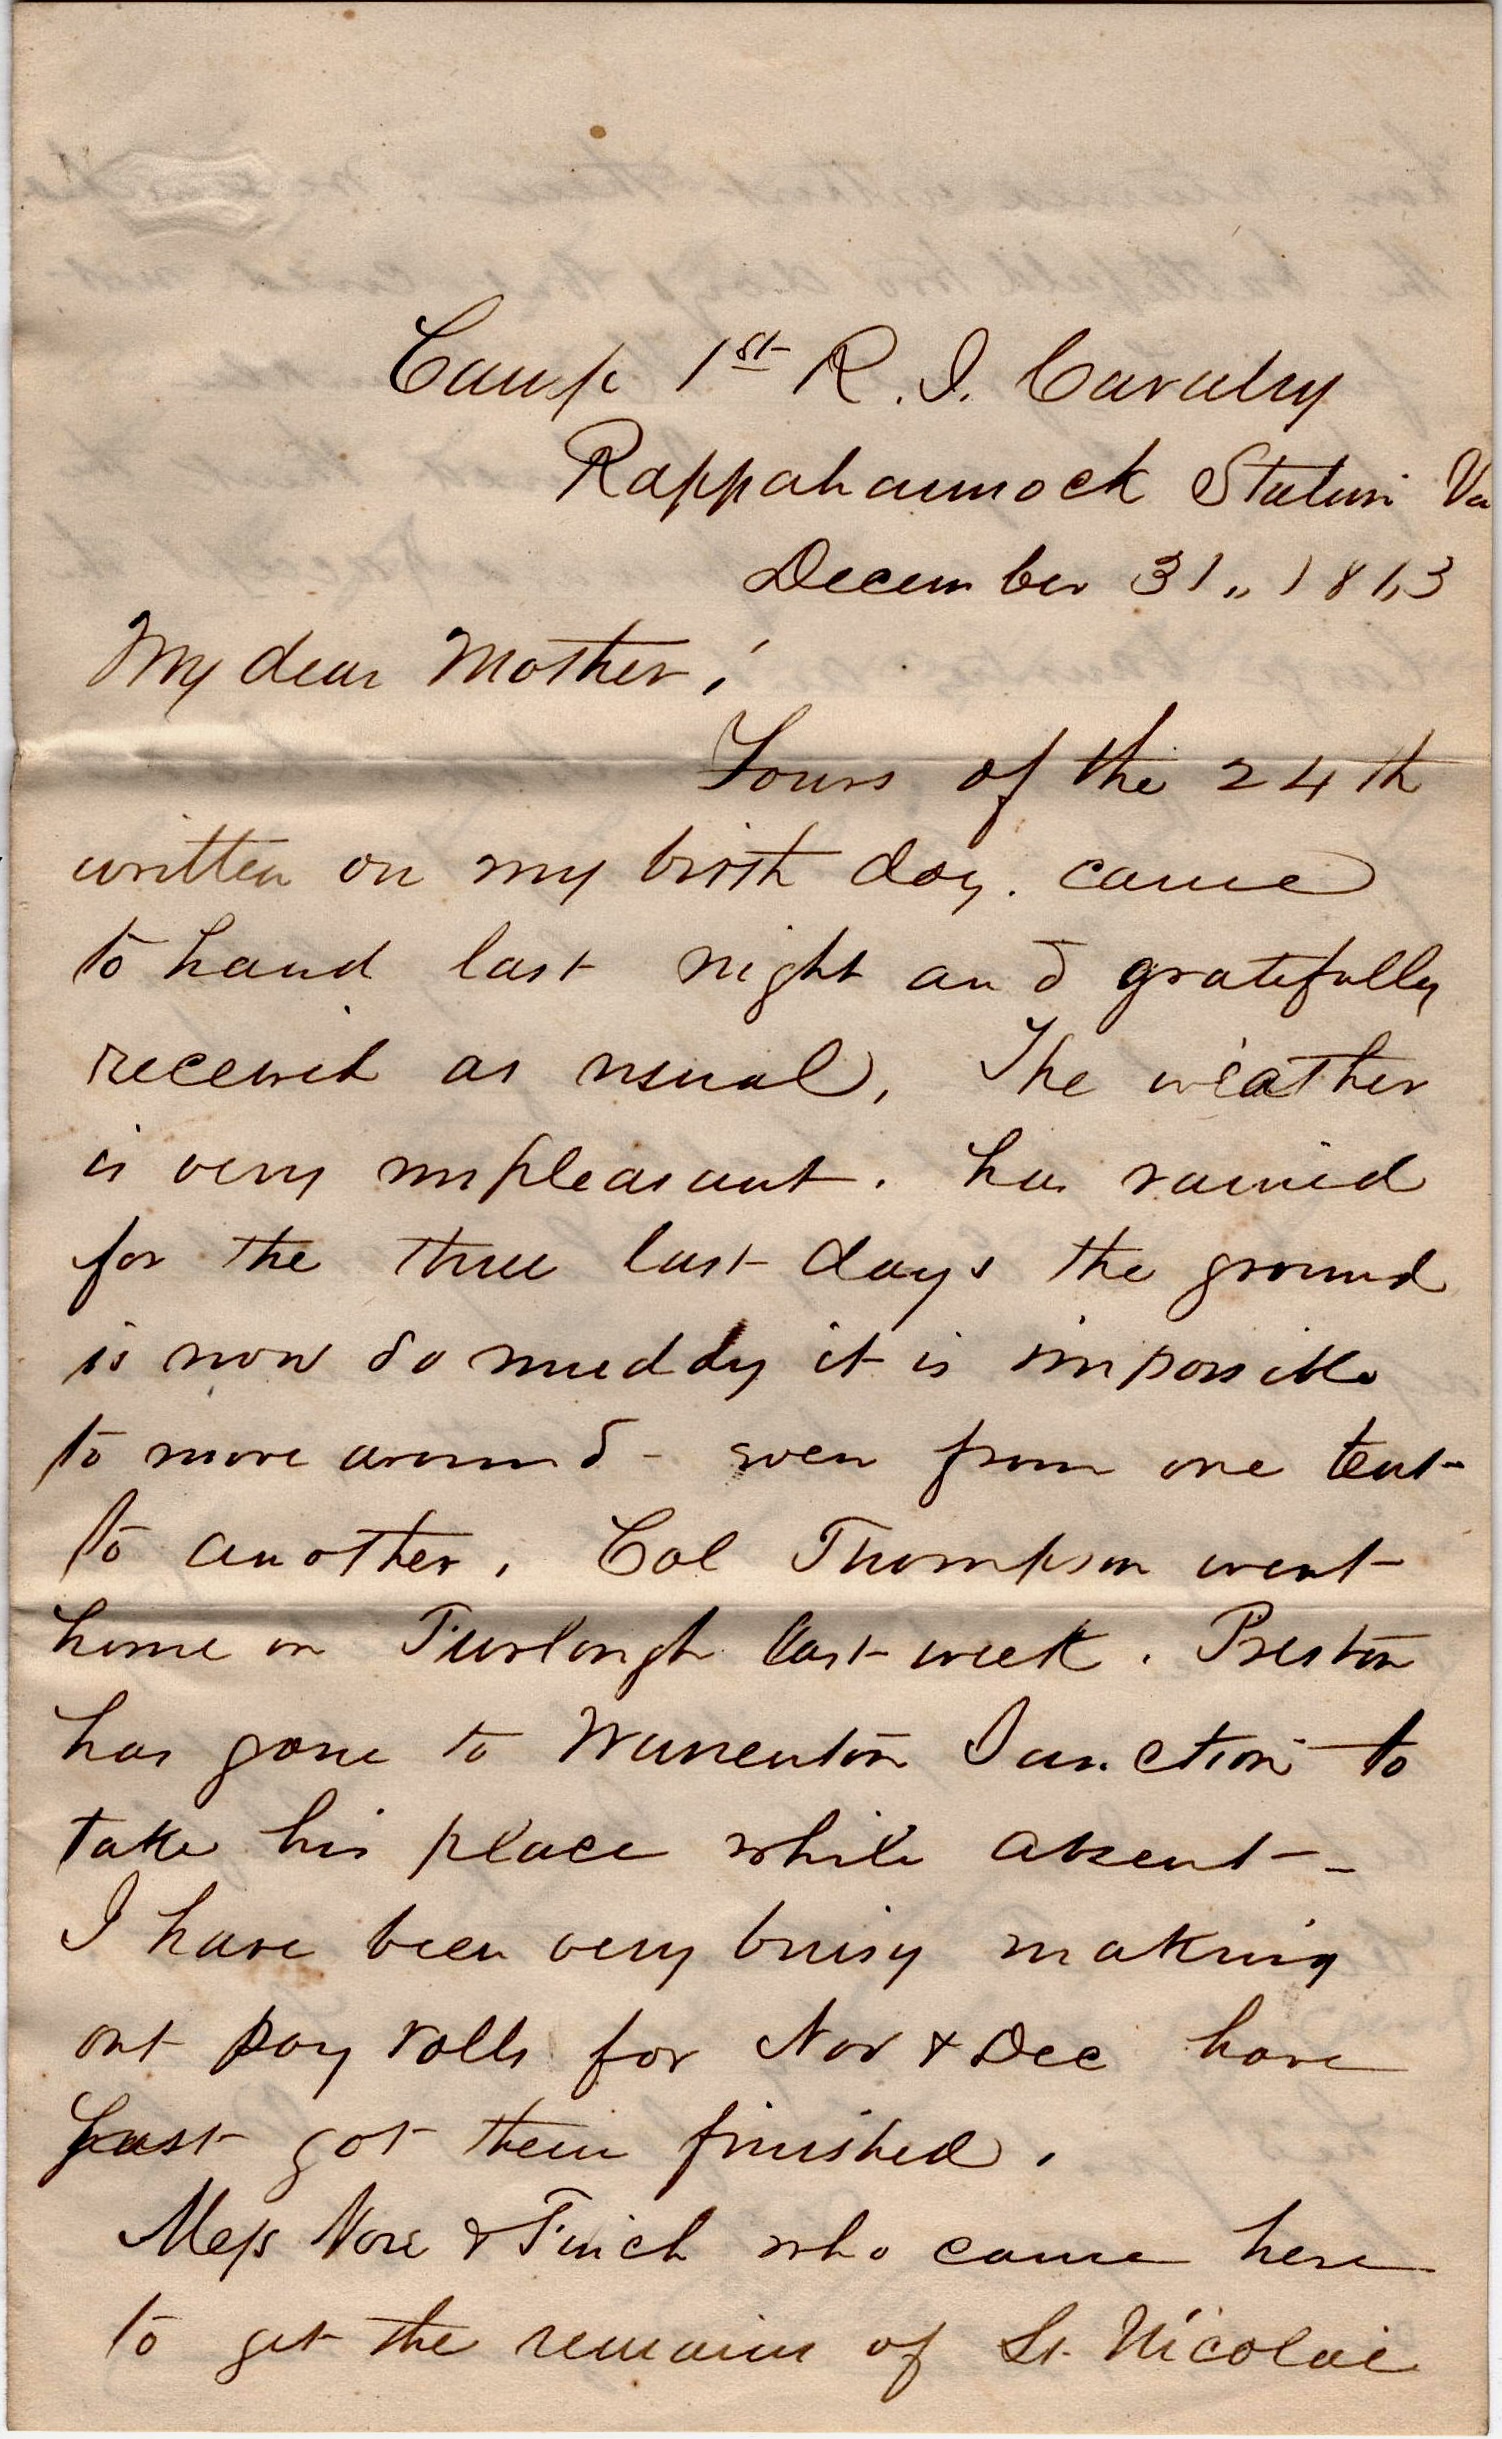 Camp 1st R. I. Cavalry
Rappahannock Station Va
December 31,, 1863
My dear Mother;
Yours of the 24th
written on my birth day. came
to hand last night and gratefully
received as usual, The weather
is very unpleasant. has rained
for the three last days the ground
is now so muddy it is impossible
to move around - even from one tent
to another, Col Thompson went
home on Furlough last week. Preston
has gone to Warrenton Junction to
take his place while absent -
I have been very buisy making
out pay rolls for Nov & Dec have
just got them finished.
Mess & Finch who came here
to get the remains of Lt. Nicolai